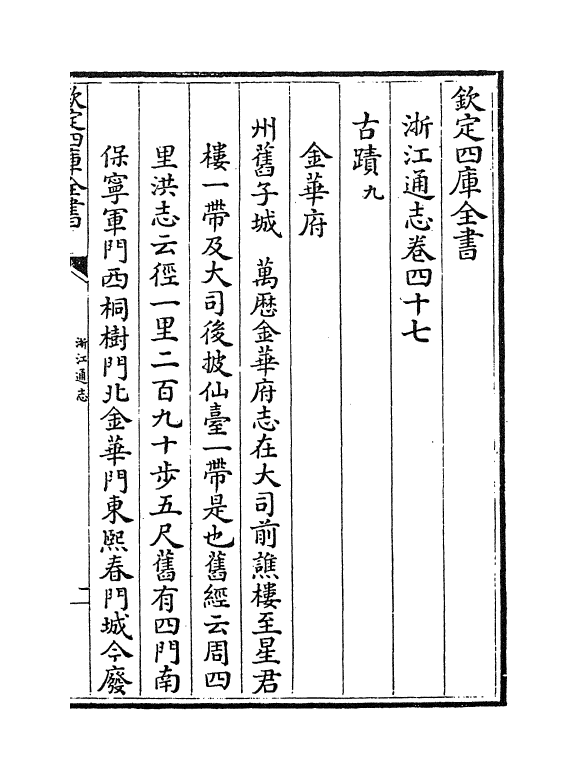 欽定四庫全書
浙江通志卷四十七
古蹟九
金華府
州舊子城　萬歴金華府志在大司前譙樓至星君
樓一帶及大司後披仙臺一帶是也舊經云周四
里洪志云徑一里二百九十步五尺舊有四門南
保寧軍門西桐樹門北金華門東熙春門城今廢
欽定四庫全書
浙江通志